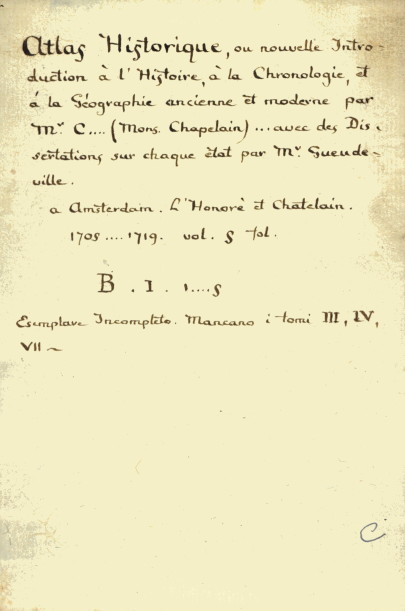 Atlas Historique, ou nouvelle Intro-
duction à l'Histoire, à la Chronologie, et
á la Géographie ancienne et moderne par
Mr C.... (Mons. Chapelain)... avec des Dis.
sertations sur chaque état par Mr. Gueude-
ville.
a Amsterdam. L'Honoré et Chatelain.
1705....1719. vol. 5 fol.
B. I. 1....5
Esemplare Incompleto. Mancano i tomi III, IV,
VII ~
C